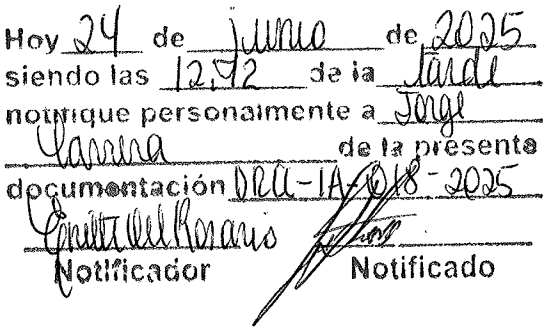 Hoy 24 de junio de 2025
siendo las 12:42 de la tarde
notifique personalmente a Jorge
Carrera de la presente
documentación DRCL-IA-018-2025
del Rosario
Notificador Notificado